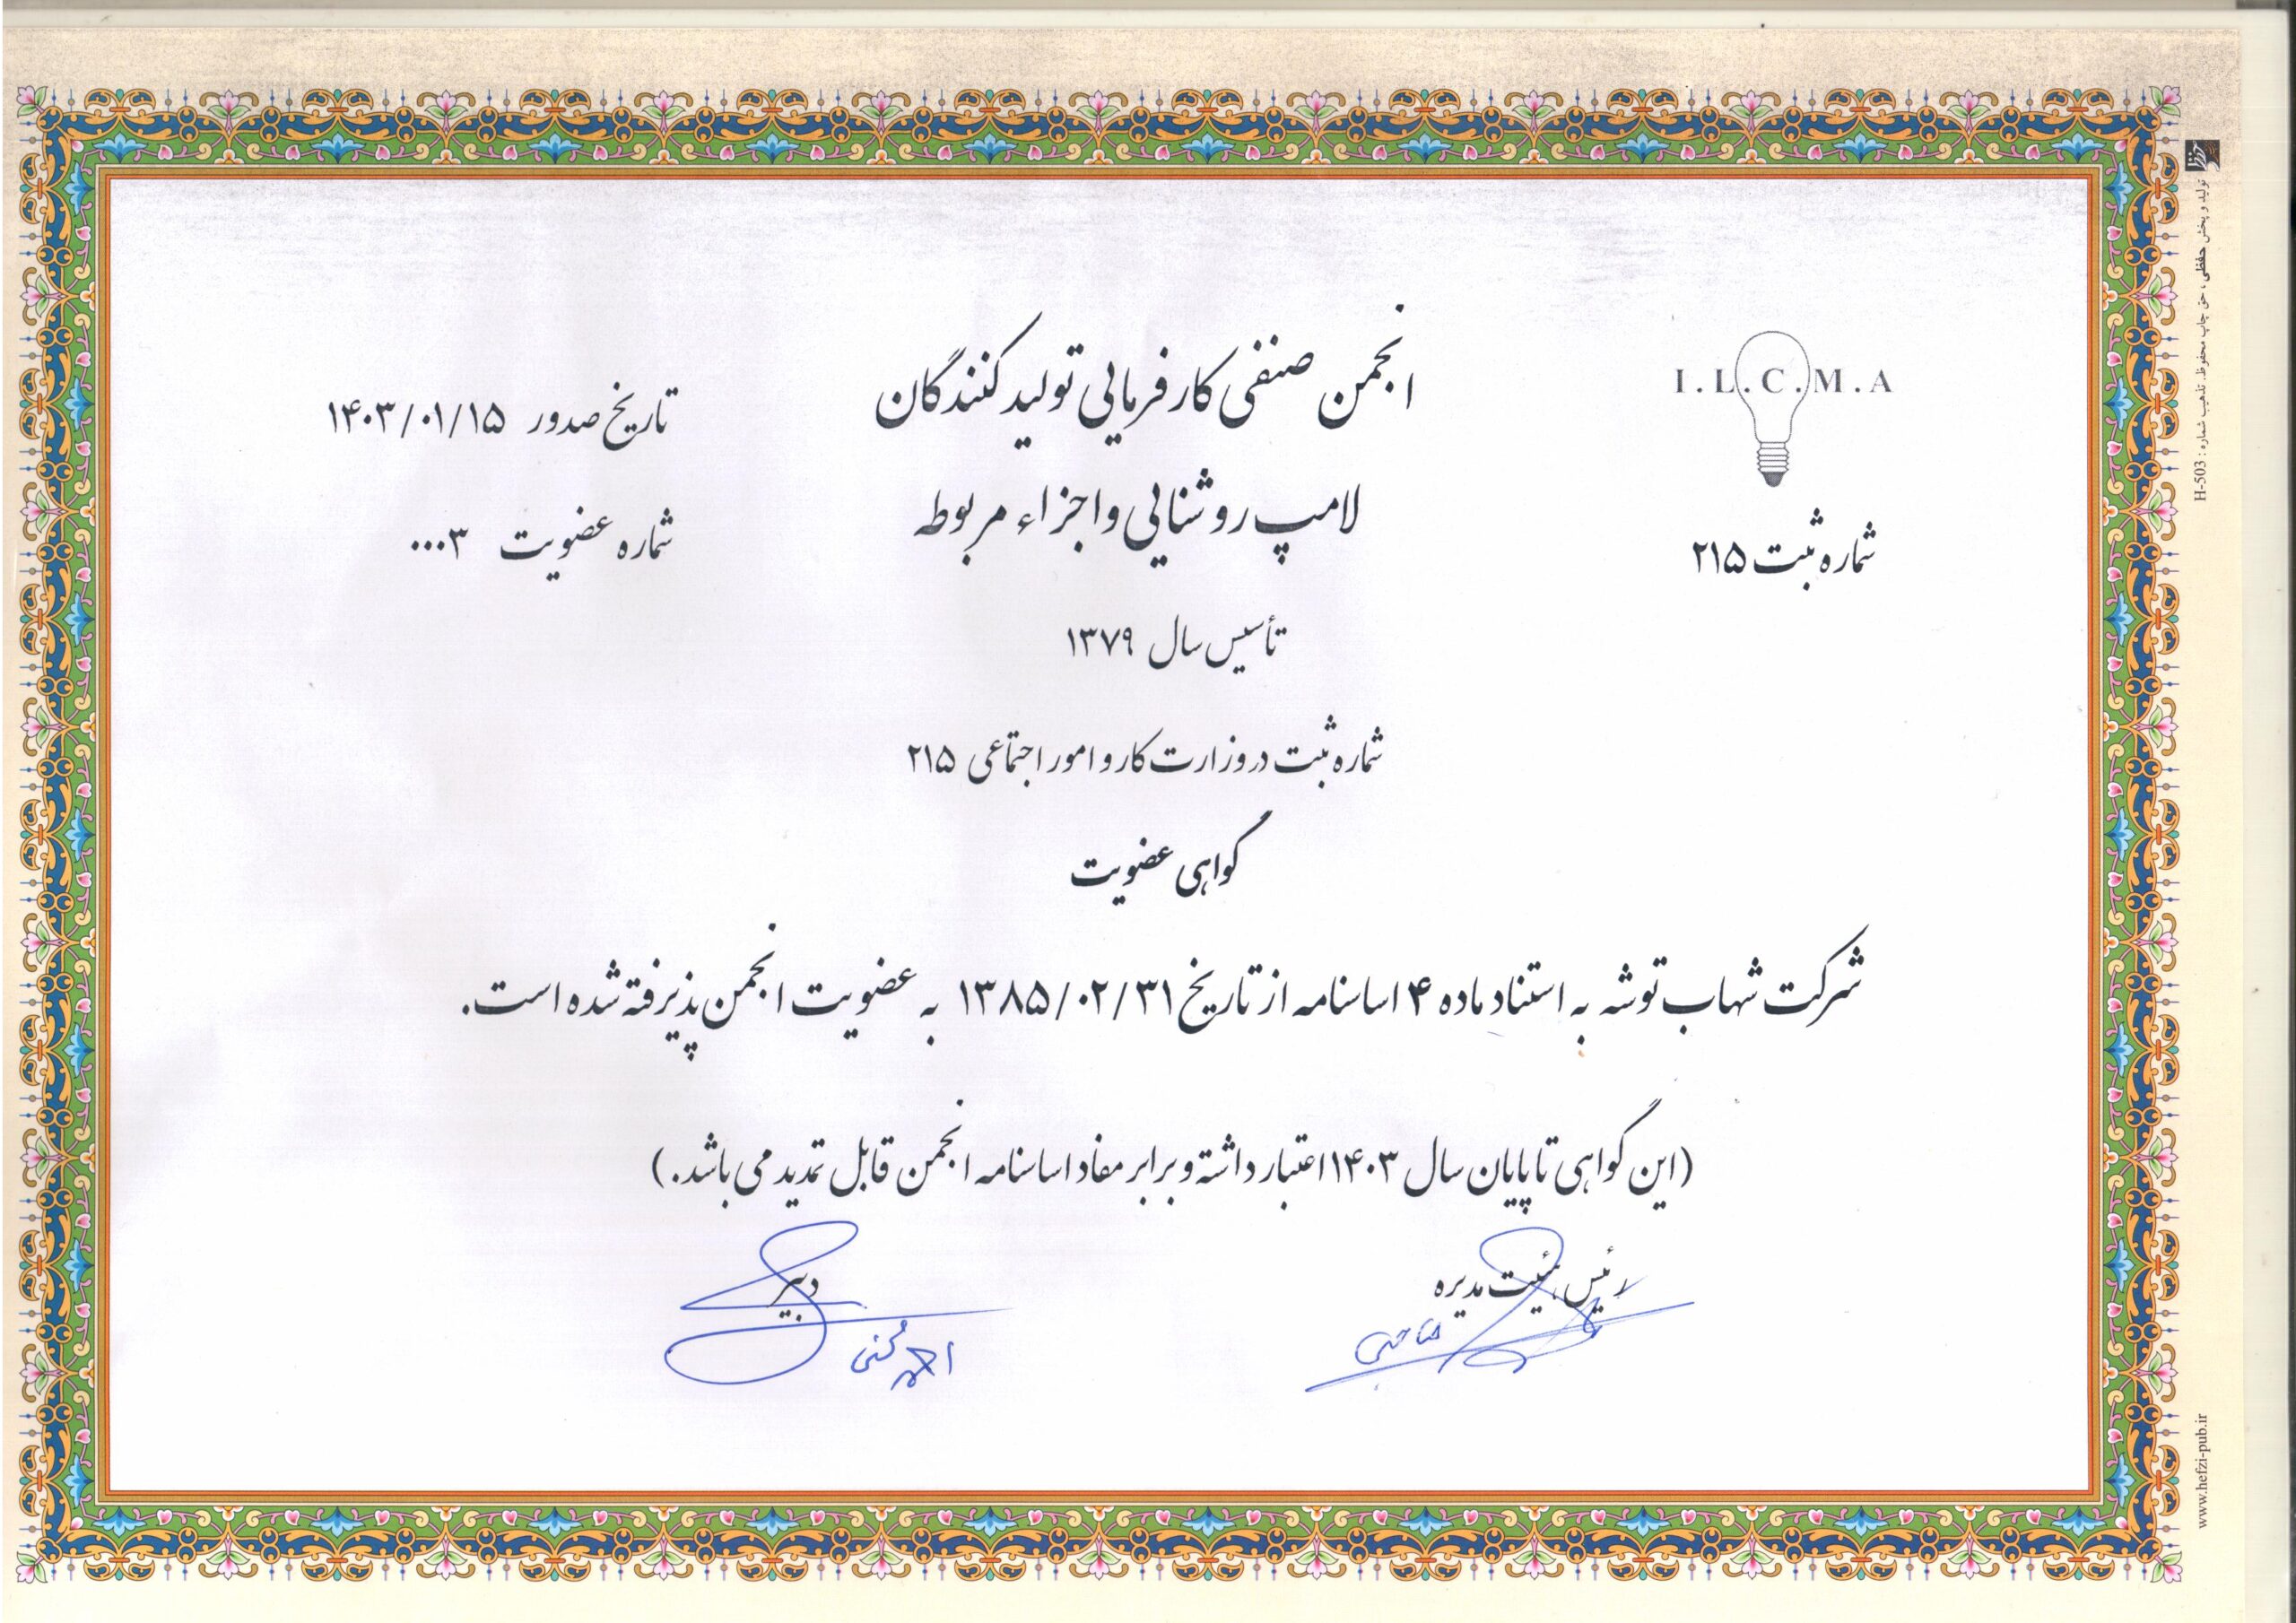 I.L.C.M.A
شماره ثبت ۲۱۵
انجمن صنفی کارفرمایی تولید کنندگان
لامپ روشنایی و اجزاء مربوطه
تأسیس سال ۱۳۷۹
شماره ثبت در وزارت کار و امور اجتماعی ۲۱۵
گواهی عضویت
تاریخ صدور ۱۴۰۳/۰۱/۱۵
شماره عضویت ۰۰۰۳
شرکت شهاب توشه به استناد ماده ۴ اساسنامه از تاریخ ۱۳۸۵/۰۲/۳۱ به عضویت انجمن پذیرفته شده است.
(این گواهی تا پایان سال ۱۴۰۳ اعتبار داشته و برابر مفاد اساسنامه انجمن قابل تمدید می باشد.)
رئیس هیئت مدیره
دبیر
تولید و پخش حفظی، حق چاپ محفوظ. تذهیب شماره : H-503
www.hefzi-pub.ir